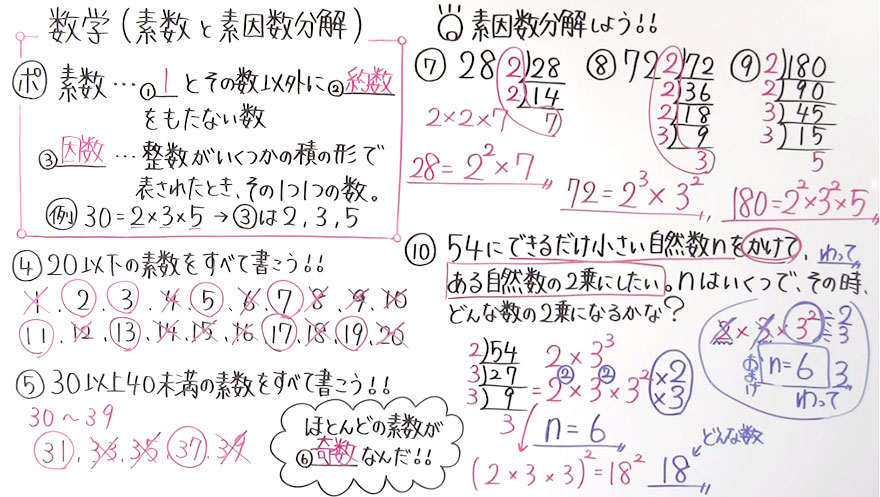 数学(素数と素因数分解)
ポ 素数…①1とその数以外に②約数
をもたない数
③因数…整数がいくつかの積の形で
表されたとき、その1つ1つの数。
例 30=2×3×5→③は2,3,5
④20以下の素数をすべて書こう!!
1、2、3、4、5、6、7、8、9、10
11、12、13、14、15、16、17、18、19、20
⑤30以上40未満の素数をすべて書こう!!
30〜39
31、33、35、37、39
ほとんどの素数が
⑥奇数なんだ!!
素因数分解しよう!!
⑦ 28
2)28
2)14
7
2×2×7
28=2²×7
⑧ 72
2)72
2)36
2)18
3)9
3
72=2³×3²
⑨
2)180
2)90
3)45
3)15
5
180=2²×3²×5
⑩ 54にできるだけ小さい自然数nをかけて、わって
ある自然数の2乗にしたい。nはいくつで、その時、
どんな数の2乗になるかな?
2)54
3)27
3)9
3
2×3³
=2②×3②×3² ×2
×3
n=6
(2×3×3)²=18² 18
どんな数
2×3×3² ÷2
÷3
おまけ n=6 3
わって